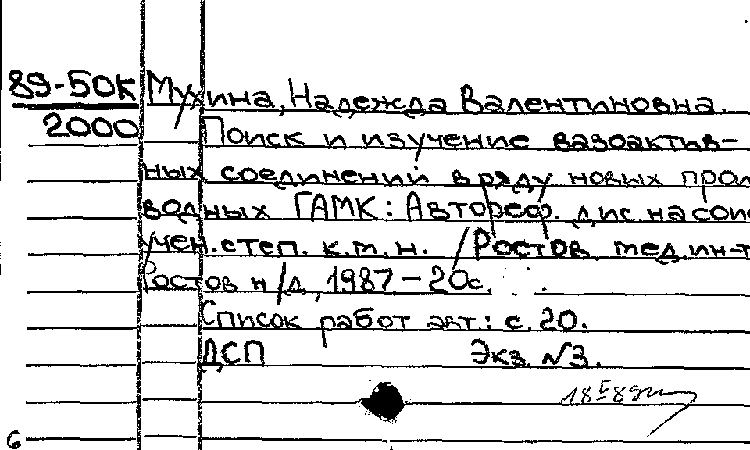 89-50К Мухина, Надежда Валентиновна.
2000 Поиск и изучение вазоактив-
ных соединений в ряду новых прои
водных ГАМК: Автореф. дис. на соис
учен. степ. к.м.н. / Ростов. мед. ин-т
Ростов н/Д, 1987 – 20с.
Список работ авт.: с. 20.
ДСП Экз. №3.
6